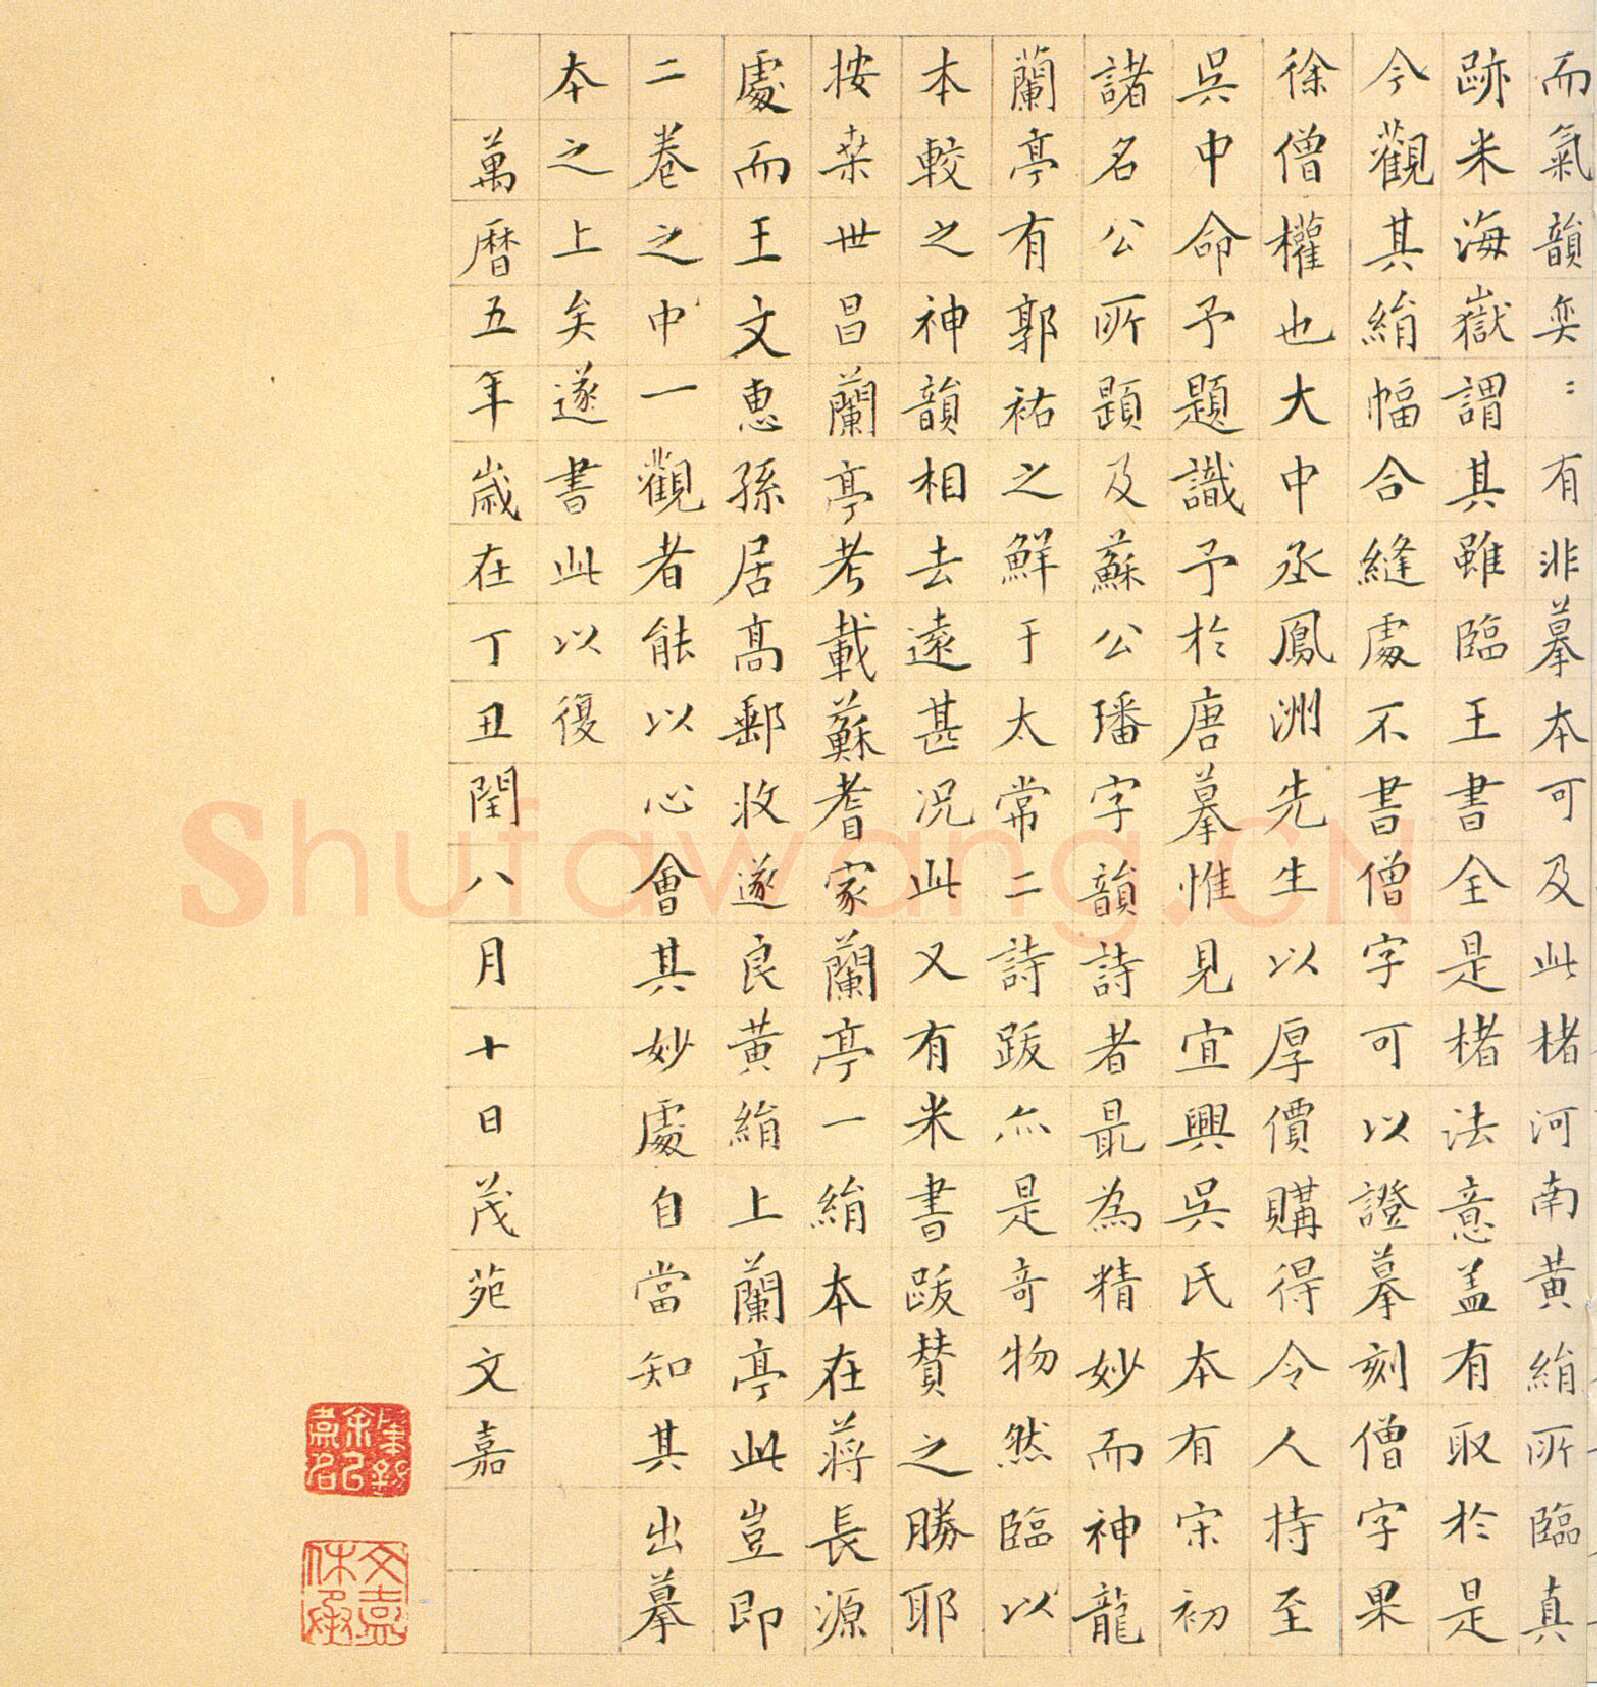 而氣韻奕：有非摹本可及此楮河南黃絹所臨真
跡米海嶽謂其雖臨王書全是楮法意盖有取於是
今觀其絹幅合縫處不書僧字可以證摹刻僧字果
徐僧權也大中丞鳳洲先生以厚價購得令人持至
吳中命予題識予於唐摹惟見宜興吳氏本有宋初
諸名公所題及蘇公璠字韻詩者最為精妙而神龍
蘭亭有郭祐之鮮于太常二詩跋亦是奇物然臨以
本較之神韻相去遠甚況此又有米書跋贊之勝耶
按桑世昌蘭亭考載蘇耆家蘭亭一絹本在蔣長源
處而王文惠孫居高郵收遂良黃絹上蘭亭此豈即
二卷之中一觀者能以心會其妙處自當知其出摹
本之上矣遂書此以復
萬曆五年歲在丁丑閏八月十日茂苑文嘉
文嘉休承
Shufawang.CN